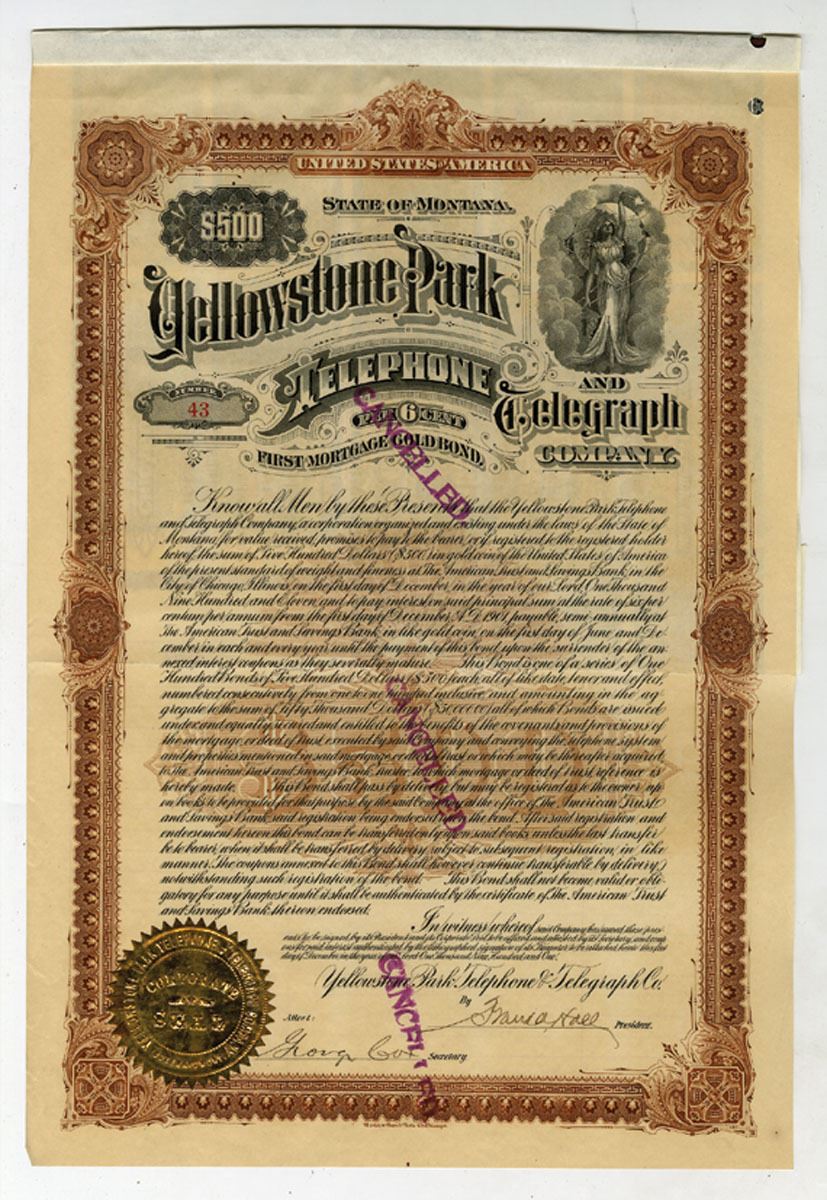 UNITED STATES OF AMERICA
STATE OF MONTANA.
$500
Yellowstone Park
TELEPHONE
AND
Telegraph
COMPANY.
NUMBER
43
PER 6 CENT
FIRST MORTGAGE GOLD BOND.
Know all Men by these Presents that the Yellowstone Park Telephone
and Telegraph Company, a corporation organized and existing under the laws of the State of
Montana, for value received, promises to pay to the bearer, or if registered to the registered holder
hereof, the sum of Five Hundred Dollars ($500) in gold coin of the United States of America
of the present standard of weight and fineness at The American Trust and Savings Bank, in the
City of Chicago, Illinois, on the first day of December, in the year of our Lord, One Thousand
Nine Hundred and Eleven, and to pay interest on said principal sum at the rate of six per
centum per annum from the first day of December, A.D. 1901, payable semi-annually at
The American Trust and Savings Bank, in like gold coin, on the first day of June and De-
cember in each and every year until the payment of this bond upon the surrender of the an-
nexed interest coupons as they severally mature. This Bond is one of a series of One
Hundred Bonds of Five Hundred Dollars ($500) each, all of like date, tenor and effect,
numbered consecutively from one to one hundred inclusive, and amounting in the ag-
gregate to the sum of Fifty Thousand Dollars ($50000.00) all of which Bonds are issued
under and equally secured and entitled to the benefits of the covenants and provisions of
the mortgage or deed of trust executed by said Company and conveying the telephone system
and properties mentioned in said mortgage or deed of trust or which may be thereafter acquired,
to The American Trust and Savings Bank, Trustee, to which mortgage or deed of trust reference is
hereby made. This Bond shall pass by delivery, but may be registered as to the owner up-
on books to be provided for that purpose by the said Company at the office of The American Trust
and Savings Bank, said registration being endorsed upon the bond. After said registration and
endorsement hereon this bond can be transferred only upon said books unless the last transfer
be to bearer, when it shall be transferred by delivery subject to subsequent registration, in like
manner. The coupons annexed to this Bond shall however continue transferable by delivery,
notwithstanding such registration of the bond. This Bond shall not become valid or obli-
gatory for any purpose until it shall be authenticated by the certificate of The American Trust
and Savings Bank thereon endorsed.
In witness whereof said Company has issued these pres-
ents to be signed by its President and its Corporate Seal to be affixed and attested by its Secretary, and coup-
ons for said interest authenticated by the lithographed signature of its to be attached hereto this first
day of December, in the year of our Lord One Thousand, Nine Hundred and One.
Yellowstone Park Telephone & Telegraph Co.
By Hall President.
Attest:
George Cox Secretary
CORPORATE
SEAL
CANCELLED
CANCELLED
CANCELLED